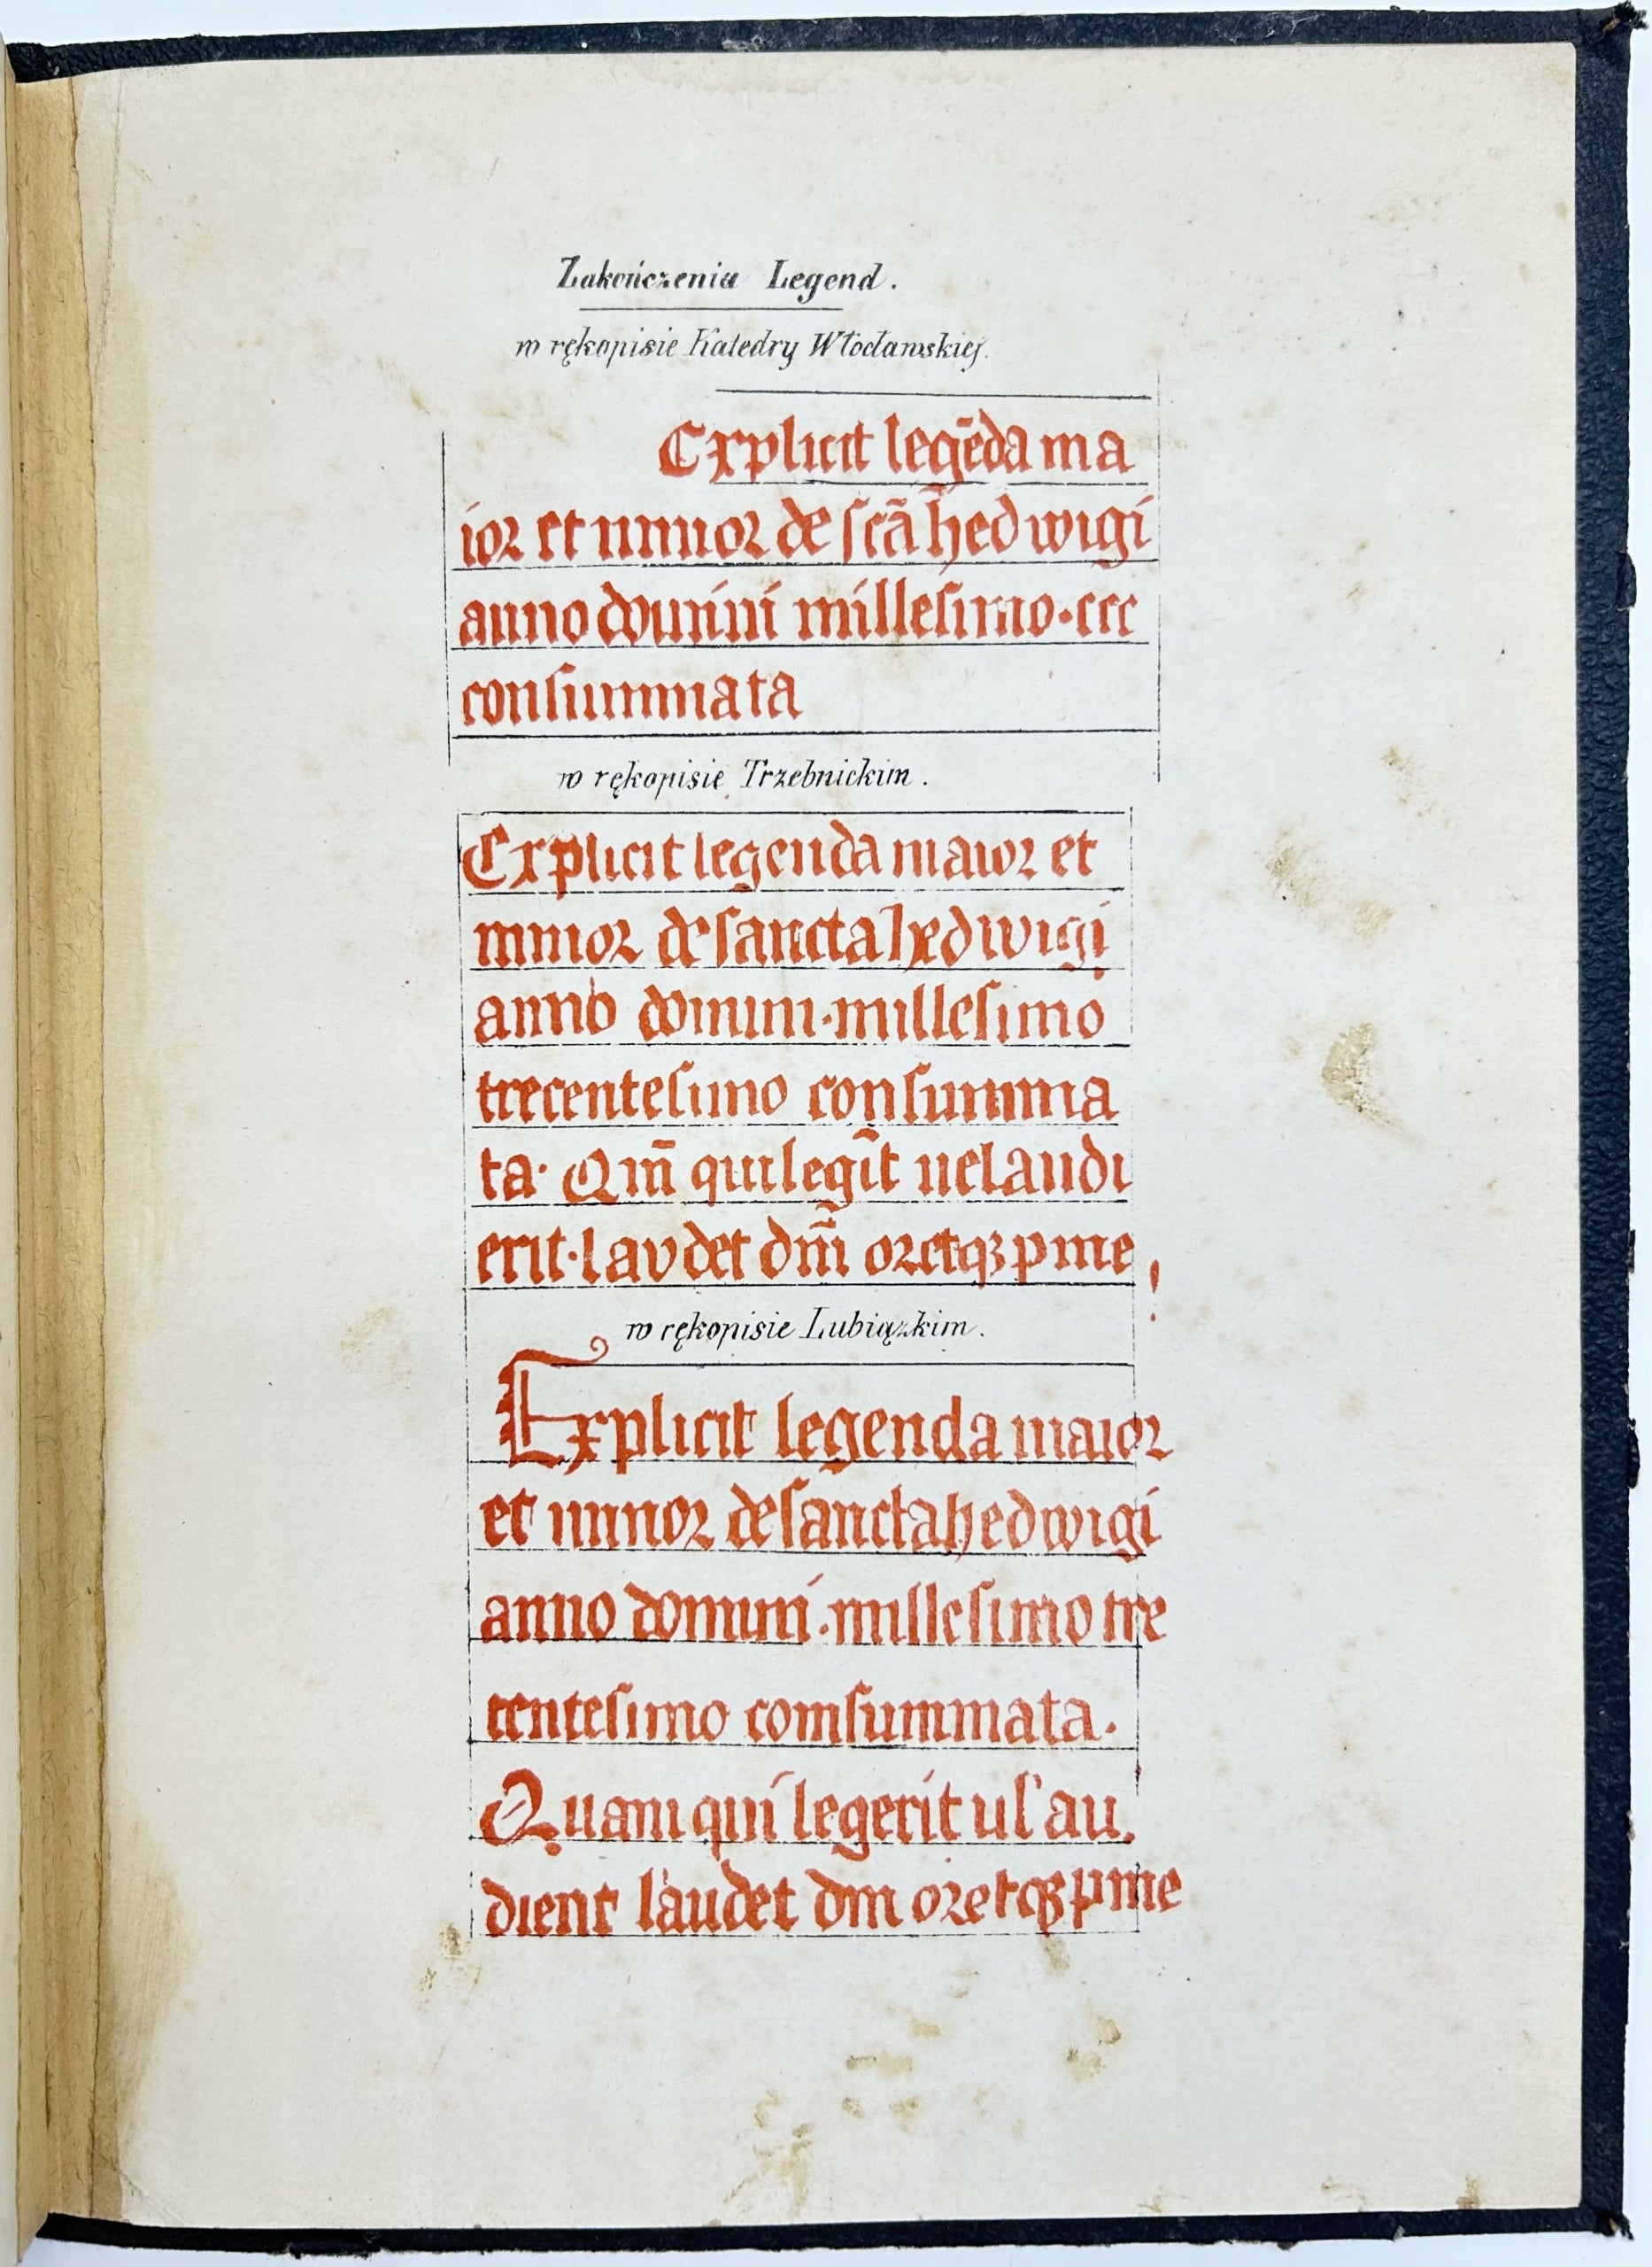 Zakończenia Legend.
w rękopisie Katedry Włocławskiej.
Explicit legēda ma
ior et minor de scā hedwigi
anno domini millesimo·ccc
consummata
w rękopisie Trzebnickim.
Explicit legenda maior et
minor de sancta hedwigi
anno domini·millesimo
trecentesimo consumma
ta· Qm̄ qui legīt uel audi
erit·laudet dm̄ oretqꝫ p me
w rękopisie Lubiązkim.
Explicit legenda maior
et minor de sancta hedwigi
anno domini·millesimo tre
centesimo comsummata.
Quam qui legerit ul' au
dient laudet dm oretqꝫ p me